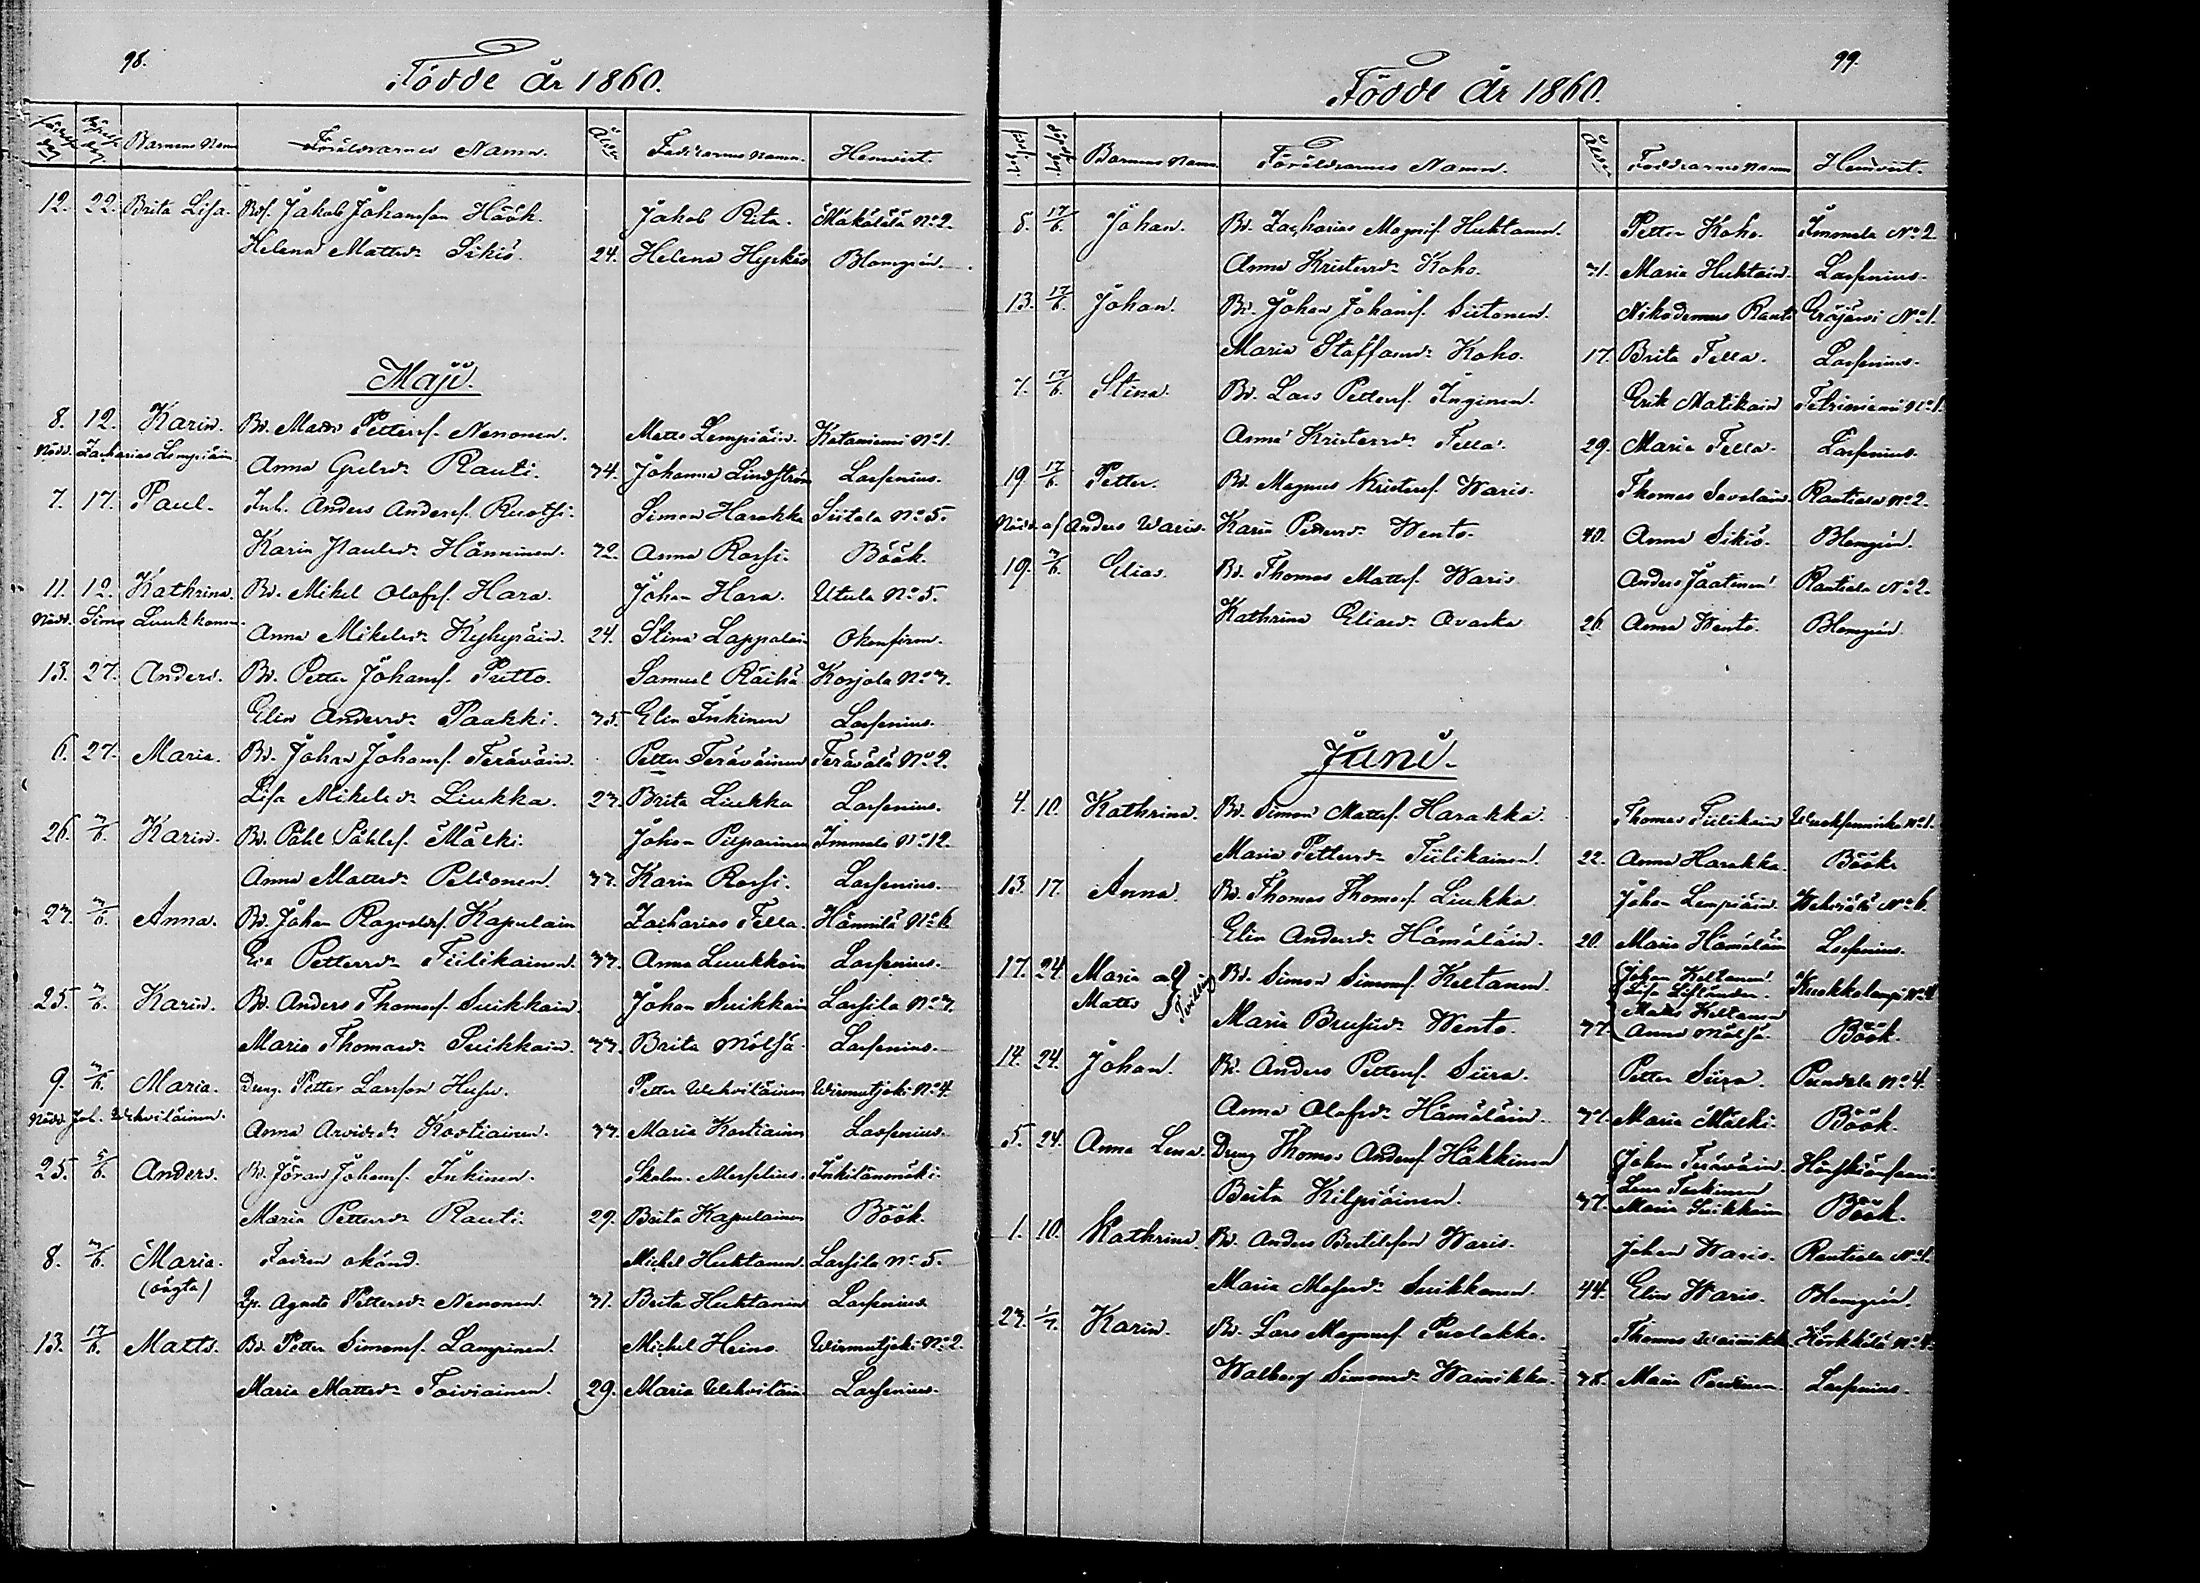 98.
Födde År 1860.
Födelse dag Döpelse dag Barnens Namn Föräldrarnes Namn. Ålder Faddrarnes Namn. Hemvist.
12. 22. Brita Lisa. Jakob Johansson Höök. Jakob Rita. Mäkälälä No 2.
Helena Mattsdr Sikiö. 24. Helena Hyrkäs Blomgrén.
Maji.
8. 12. Karin. Bd. Matts Pettersf. Nenonen. Matts Lempiäin. Kataniemi No 1.
Nöddöpt Zacharias Lempiäin Anna Grelsdr Rauti. 34. Johanna Lindström Lassenius.
7. 17. Paul. Inh. Anders Andersf. Ruotsi. Simon Harakka Siitola No 5.
Karin Paulsdr Hänninen. 32. Anna Rossi. Böök.
11. 12. Kathrina. Bd. Mikel Olofsf. Hara. Johan Hara. Utula No 5.
Nödd. Simo Luukkonen Anna Mikelsdr Kyhyräin. 24. Stina Lappalain
13. 27. Anders. Bd. Petter Johansf. Putto. Samuel Räihä Korjola No 3.
Elin Andersdr Paakki. 35. Elin Inkinen Lassenius.
6. 27. Maria. Bd. Johan Johansf. Teräväin. Petter Teräväinen Terävälä No 2.
Lisa Mikelsdr Liukka. 23. Brita Liukka Lassenius.
26. 3/6. Karin. Bd. Påhl Påhlsf. Mälki. Johan Piiparinen Immola No 12.
Anna Mattsdr Peltonen. 33. Karin Rossi. Lassenius.
23. 3/6. Anna. Bd. Johan Ragvaldsf. Kapulain Zacharias Tella. Hännilä No 6
Eva Pettersdr Tiilikainen. 33. Anna Luukkoin Lassenius.
25. 3/6. Karin. Bd. Anders Thomasf. Suikkain. Johan Suikkain Lassila No 3.
Maria Thomasdr Suikkain. 33. Brita Mölsä. Lassenius.
9. 3/6. Maria. Dreng Petter Larsson Husu. Petter Wehviläinen Wirmutjoki No 4.
Nödd. Joh. Wehviläinen. Anna Arvidsdr Kostiainen. 33. Maria Kostiainen Lassenius.
25. 5/6. Anders. Bd. Jöran Johansf. Inkinen. Skolm. Meselius. Inkilänmäki.
Maria Pettersdr Rauti. 29. Brita Kapulainen Böök.
8. 3/6. Maria. Fadren okänd. Mickel Huhtanen. Lassila No 5.
(oägta) Agneta Pettersdr Nenonen. 31. Brita Huhtanen Lassenius
13. 17/6. Matts. Bd. Petter Simonsf. Lampinen. Michel Heino. Wirmutjoki No 2.
Maria Mattsdr Toiviainen. 29. Maria Wehviläin. Lassenius.
99.
Födde År 1860.
Barnens Namn Föräldrarnes Namn. Ålder Faddrarnes Namn Hemvist.
5. 17/6. Johan. Bd. Zacharias Magnif. Huhtanen. Petter Koho. Immola No 2
Anna Kristersdr Koho. 31. Maria Huhtain. Lassenius.
13. 17/6. Johan. Bd. Johan Johansf. Siitonen. Nikodemus Rauti Eräjärvi No 1.
Maria Staffansdr Koho. 17. Brita Tella. Lassenius.
7. 17/6. Stina. Bd. Lars Pettersf. Inginen. Erik Matikain Tetriniemi No 1.
Anna Kristersdr Tella. 29. Maria Tella. Lassenius.
19. 17/6. Petter. Bd. Magnus Kristersf. Waris. Thomas Savolain. Rautiala No 2.
Nödd. af Anders Waris. Karin Pettersdr Wento. 40. Anna Sikiö. Blomgrén.
19. 3/6. Elias. Bd. Thomas Mattsf. Waris. Anders Jaatinen Rautiala No 2.
Kathrina Eliasdr Avaska 26. Anna Wento. Blomgrén.
Juni.
4. 10. Kathrina. Bd. Simon Mattsf. Harakka. Thomas Tiilikain Wuoksenniska No 1.
Maria Pettersdr Tiilikainen. 22. Anna Harakka. Böök.
13. 17. Anna. Bd. Thomas Thomasf. Liukka. Johan Lempiäin. No 6.
Elin Andersdr Hämäläin. 20. Maria Hämäläin Lassenius.
17. 24. Maria och Bd. Simon Simonsf. Keltanen. Johan Keltanen
Lisa Lifländer. Kuokkalampi No 4.
Matts Tvilling Maria Brusiidr Wento. 37. Matts Keltanen
Anna Mölsä. Böök.
14. 24. Johan. Bd. Anders Pettersf. Siira. Petter Siira. Puntala No 4.
Anna Olofsdr Hämäläin. 31. Maria Mälki. Böök.
5. 24. Anna Lena. Dreng Thomas Andersf. Häkkinen Johan Teräväin.
Lena Turkinen
Brita Kilpiäinen. 37. Maria Suikkain Böök.
1. 10. Kathrina. Bd. Anders Bertilsson Waris. Johan Waris. Rautiala No 1.
Maria Mosesdr Suikkanen. 44. Elin Waris. Blomgrén.
23. 1/7. Karin. Bd. Lars Magnusf. Puolakka. Thomas Wainikka Korkkola No 4.
Walborg Simonsdr Wainikka. 38. Maria Lassenius.